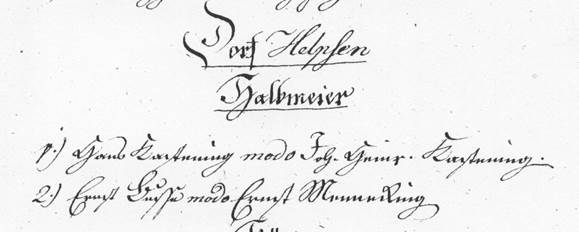 Dorf Helpsen
Halbmeier
1.) Hans Kastening modo Joh. Heinr. Kastening.
2.) Ernst Busse modo Ernst Menneking